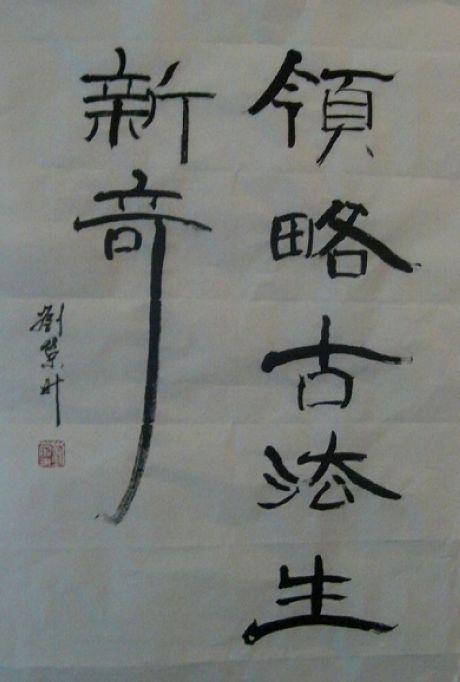 領略古法生
新奇
劉榮升